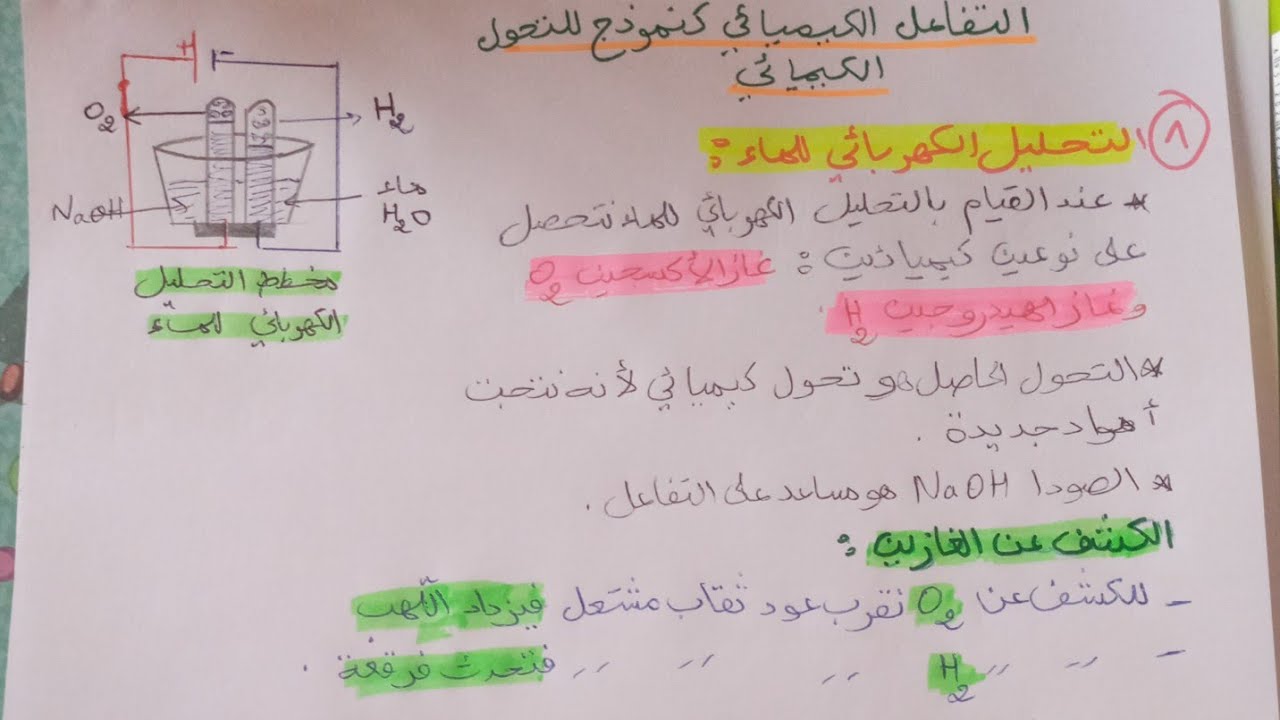 التفاعل الكيميائي كنموذج للتحول
الكيميائي
1 التحليل الكهربائي للماء :
* عند القيام بالتحليل الكهربائي للماء نتحصل
على نوعين كيميائيين : غاز الأكسجين O2
وغاز الهيدروجين H2.
* التحول الحاصل هو تحول كيميائي لأنه نتجت
مواد جديدة .
* الصودا NaOH هو مساعد على التفاعل .
الكشف عن الغازين :
- للكشف عن O2 نقرب عود ثقاب مشتعل فيزداد اللّهب
- ,, ,, H2 ,, ,, ,, ,, فتحدث فرقعة .
+ -
O2
H2
NaOH
ماء
H2O
مخطط التحليل
الكهربائي للماء